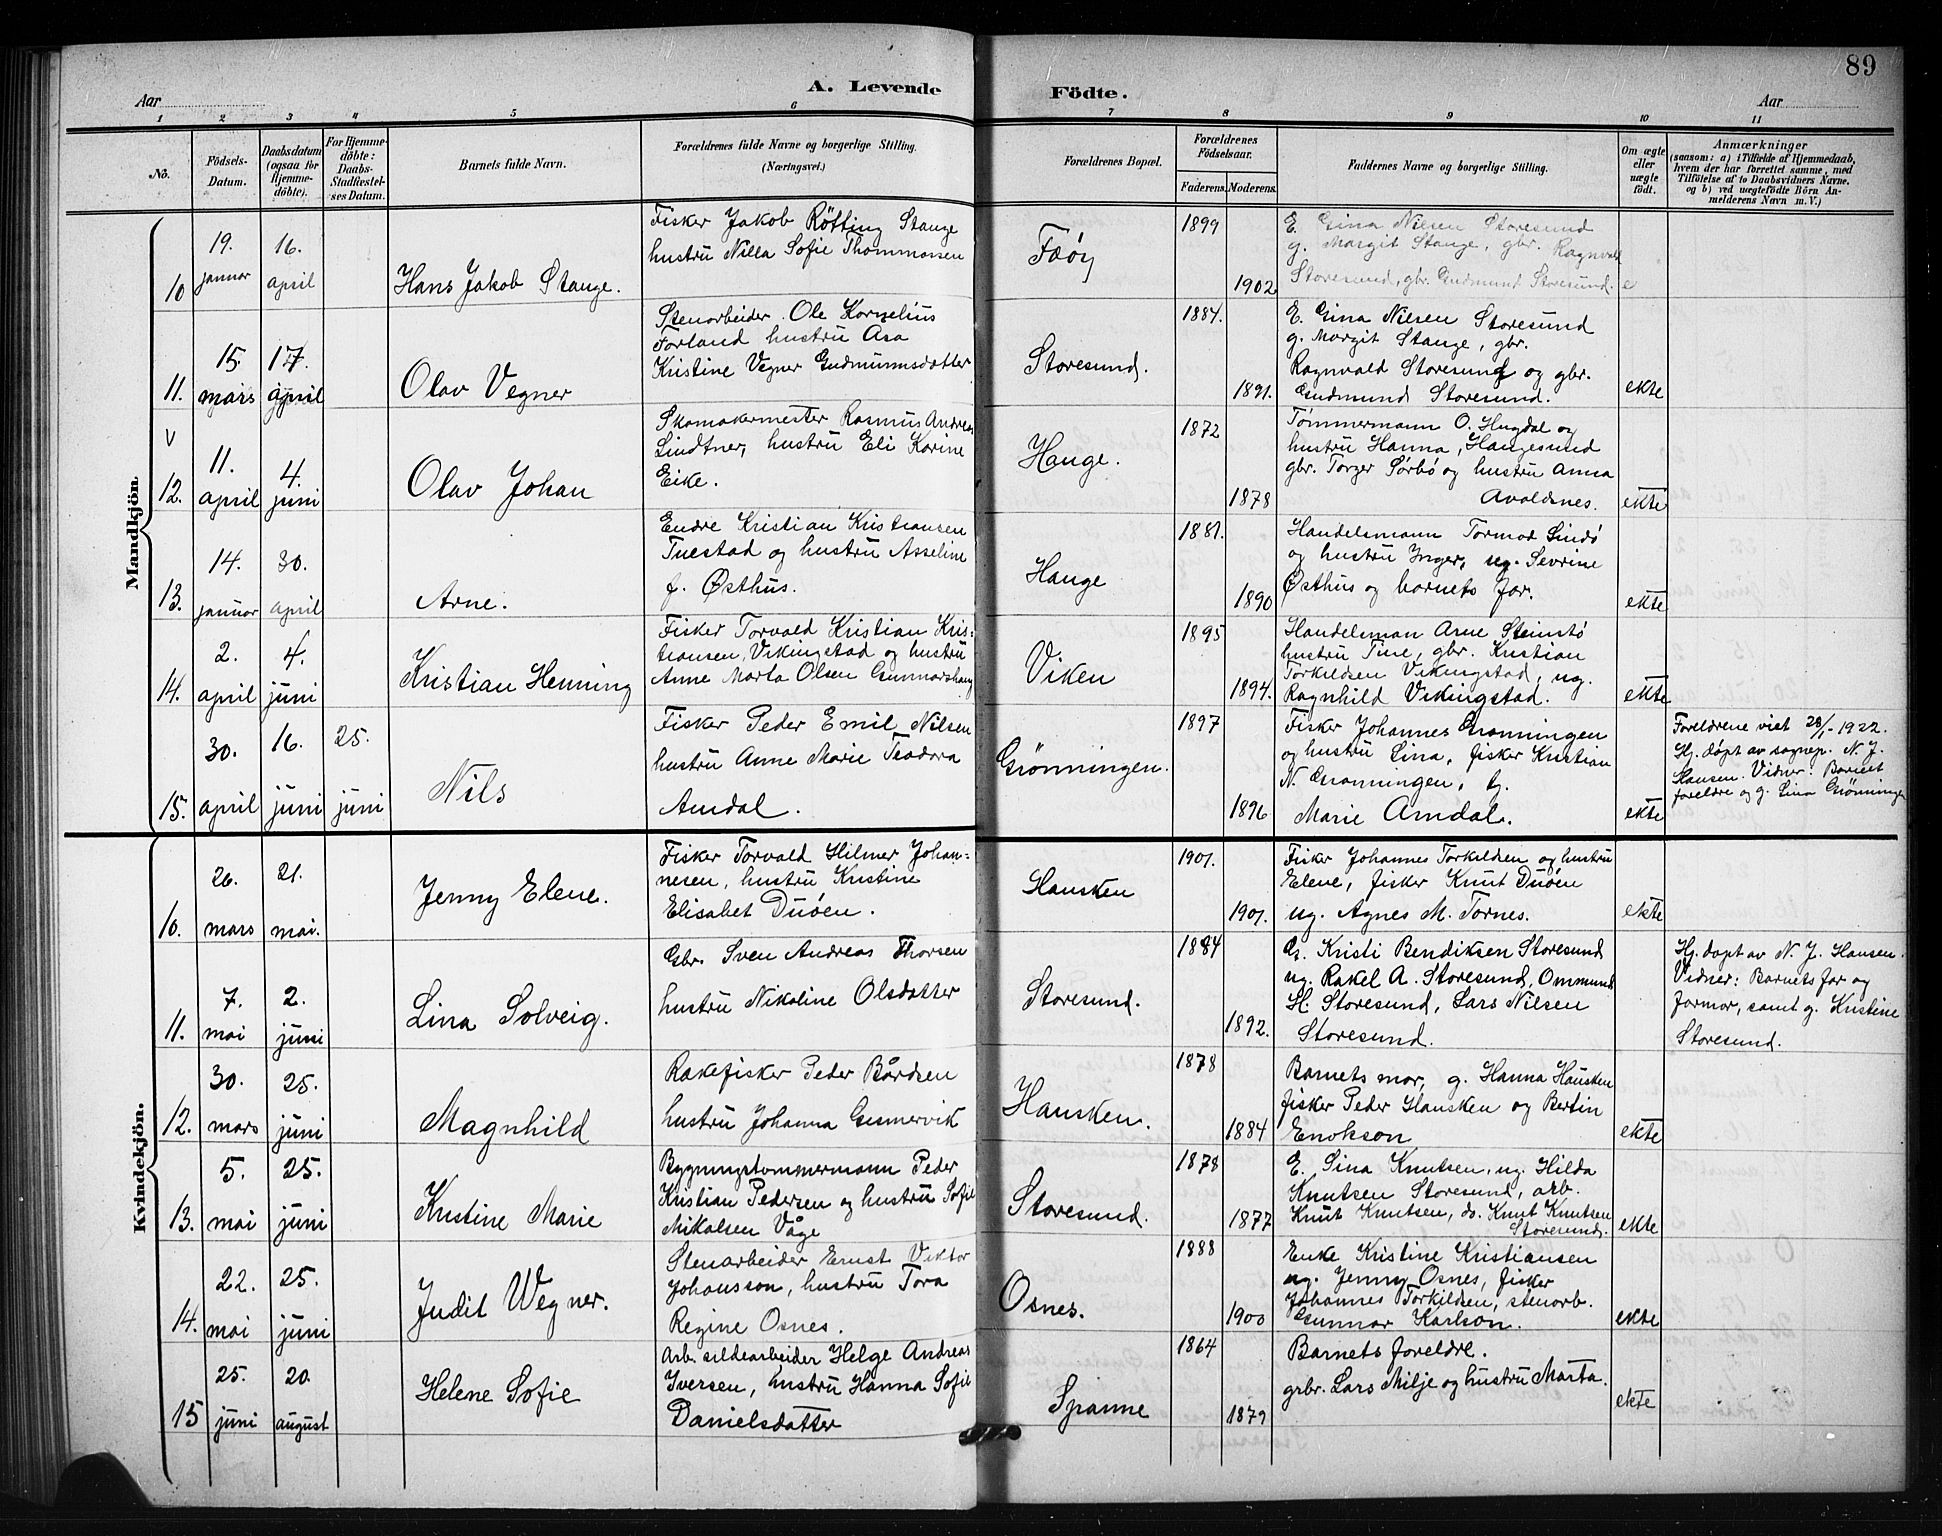 89
A. Levende Födte.
Aar
Aar
1 2 3 4 5 6 7 8 9 10 11
No.
Födsels-Datum.
Daabsdatum (ogsaa for Hjemme-döbte).
For Hjemme-döbte: Daabs-Stadfæstel-ses Datum.
Barnets fulde Navn.
Forældrenes fulde Navne og borgerlige Stilling.
(Næringsvei.)
Forældrenes Bopæl.
Forældrenes Födselsaar.
Faderens. Moderens.
Faddernes Navne og borgerlige Stilling.
Om ægte eller uægte födt.
Anmærkninger
(saasom: a) i Tilfælde af Hjemmedaab,
hvem der har forrettet samme, med
Tilföielse af to Daabsvidners Navne,
og b) ved uegtefödte Börn An-
melderens Navn m. V.)
Mandkjön.
10
19. januar
16. april
Hans Jakob Stange.
Fisker Jakob Röthing Stange
hustru Nilla Sofie Thommassen
Fæøy
1899
1902
E. Gina Nilsen Storesund
g. Margit Stange, gbr. Ragnvald
Storesund, gbr. Gudmund Storesund.
e
11.
15. mars
17. april
Olav Vegner
Stenarbeider Ole Kornelius
Forland hustru Asa
Kristine Vegner Gudmunnsdatter
Storesund.
1884.
1891.
E. Gina Nilsen Storesund
g. Margit Stange, gbr.
Ragnvald Storesund og gbr.
Gudmund Storesund.
ekte
v
12.
11. april
4. juni
Olav Johan
Skomakermester Rasmus Andreas
Lindtner, hustru Eli Karine
Eike.
Hauge.
1872
1878
Tømmermann O. Hugdal og
hustru Hanna, Haugesund
gbr. Torger Sørbö og hustru Anna
Avaldsnes.
ekte
13.
14. januar
30. april
Arne.
Endre Kristian Kristiansen
Tuestad og hustru Asseline
f. Østhus.
Hauge
1881.
1890
Handelsmann Tormod Lindö
og hustru Inger, ug. Sevrine
Østhus og barnets far.
ekte
14.
2. april
4. juni
Kristian Henning
Fisker Torvald Kristian Kris-
tiansen, Vikingstad og hustru
Anne Marta Olsen Gunnarshaug
Viken
1895
1894.
Handelsman Arne Steinstö
hustru Tine, gbr. Kristian
Torkildsen Vikingstad, ug.
Ragnhild Vikingstad.
ekte
15.
30. april
16. juni
25. juni
Nils
Fisker Peder Emil Nilsen
hustru Anne Marie Teodora
Amdal.
Grönningen.
1897
1896
Fisker Johannes Grönningen
og hustru Lina, fisker Kristian
N. Grönningen,
Marie Amdal.
ekte
Foreldrene viet 28/1-1922.
Hj. döpt av sognep. N. J.
Hansen. Vidner: Barnets
foreldre og g. Lina Grönningen
Kvindekjön.
10.
26. mars
21. mai.
Jenny Elene.
Fisker Torvald Hilmer Johan-
nesen, hustru Kristine
Elisabet Duöen.
Hausken
1901.
1901.
Fisker Johannes Torkildsen og hustru
Elene, fisker Knut Duöen
ug. Agnes M. Tornes.
ekte
11.
7. mai
2. juni
Lina Solveig.
Gbr. Sven Andreas Thorsen
hustru Nikoline Olsdatter
Storesund.
1884
1892.
G. Kristi Bendiksen Storesund
ug. Rakel A. Storesund, Ommund
H. Storesund, Lars Nilsen
Storesund.
Hj. döpt av N. J. Hansen.
Vidner: Barnets far og
farmor, samt g. Kristine
Storesund.
12.
30. mars
25. juni
Magnhild
Rakefisker Peder Bårdsen
hustru Johanna Gismervik
Hausken.
1878
1884
Barnets mor, g. Hanna Hausken
fisker Peder Hausken og Bertin
Enokson
ekte
13.
5. mai
25. juni
Kristine Marie
Bygningstømmermann Peder
Kristian Pedersen og hustru Sofie
Mikalsen Våge
Storesund.
1878
1877
E. Sina Knutsen, ug. Hilda
Knutsen Storesund, arb.
Knut Knutsen, do. Knut Knutsen
Storesund.
ekte
14.
22. mai
25. juni
Judit Wegner.
Stenarbeider Ernst Viktor
Johansson, hustru Tora
Regine Osnes.
Osnes.
1888
1900
Enke Kristine Kristiansen
ug. Jenny Osnes, fisker
Johannes Torkildsen, stenarb.
Gunnar Karlson.
ekte
15
25. juni
20. august
Helene Sofie
Arb. sildearbeider Helge Andreas
Iversen, hustru Hanna Sofie
Danielsdatter
Spanne
1864
1879
Barnets foreldre.
grbr. Lars Milje og hustru Marta.
ekte